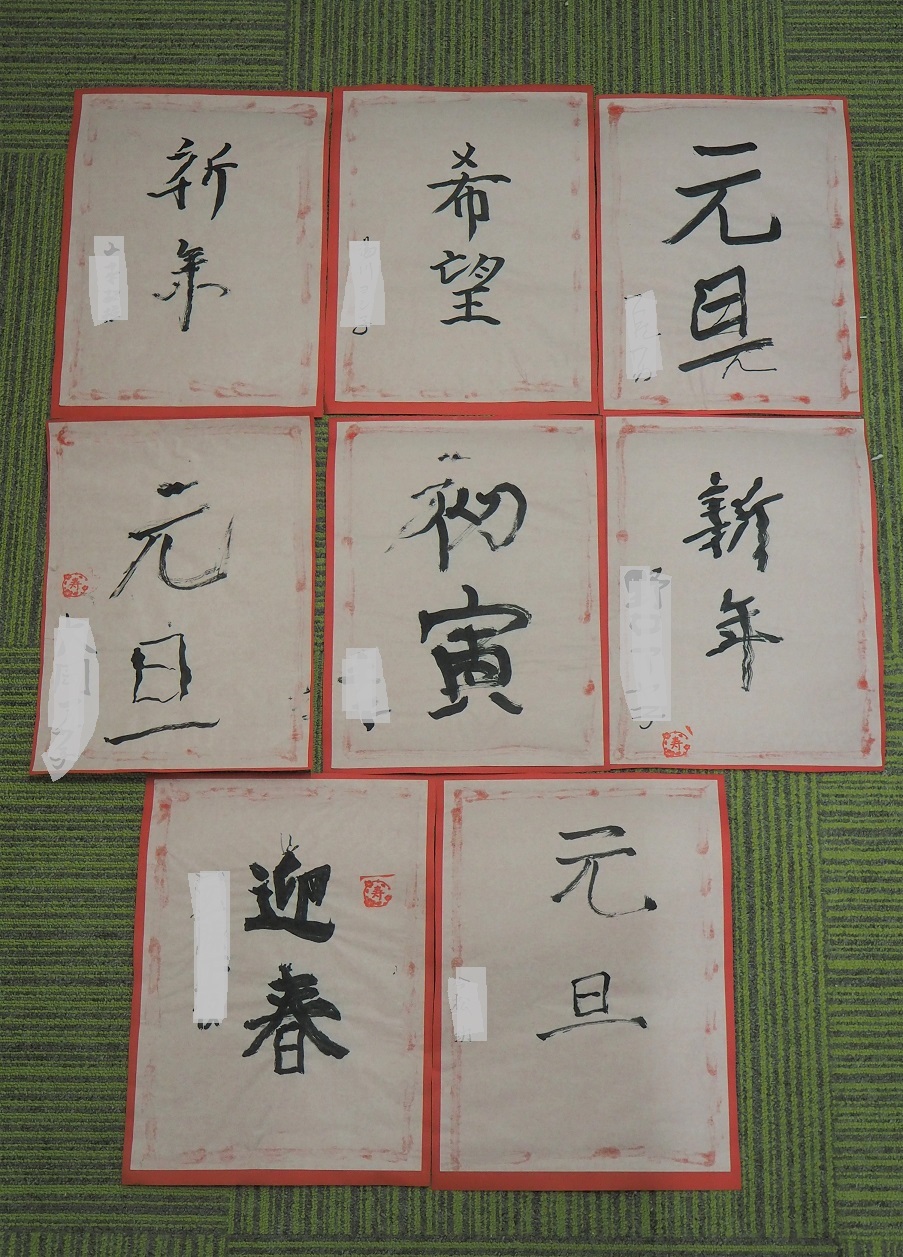 新年
希望
元旦
元旦
寿
初寅
新年
寿
迎春
寿
元旦